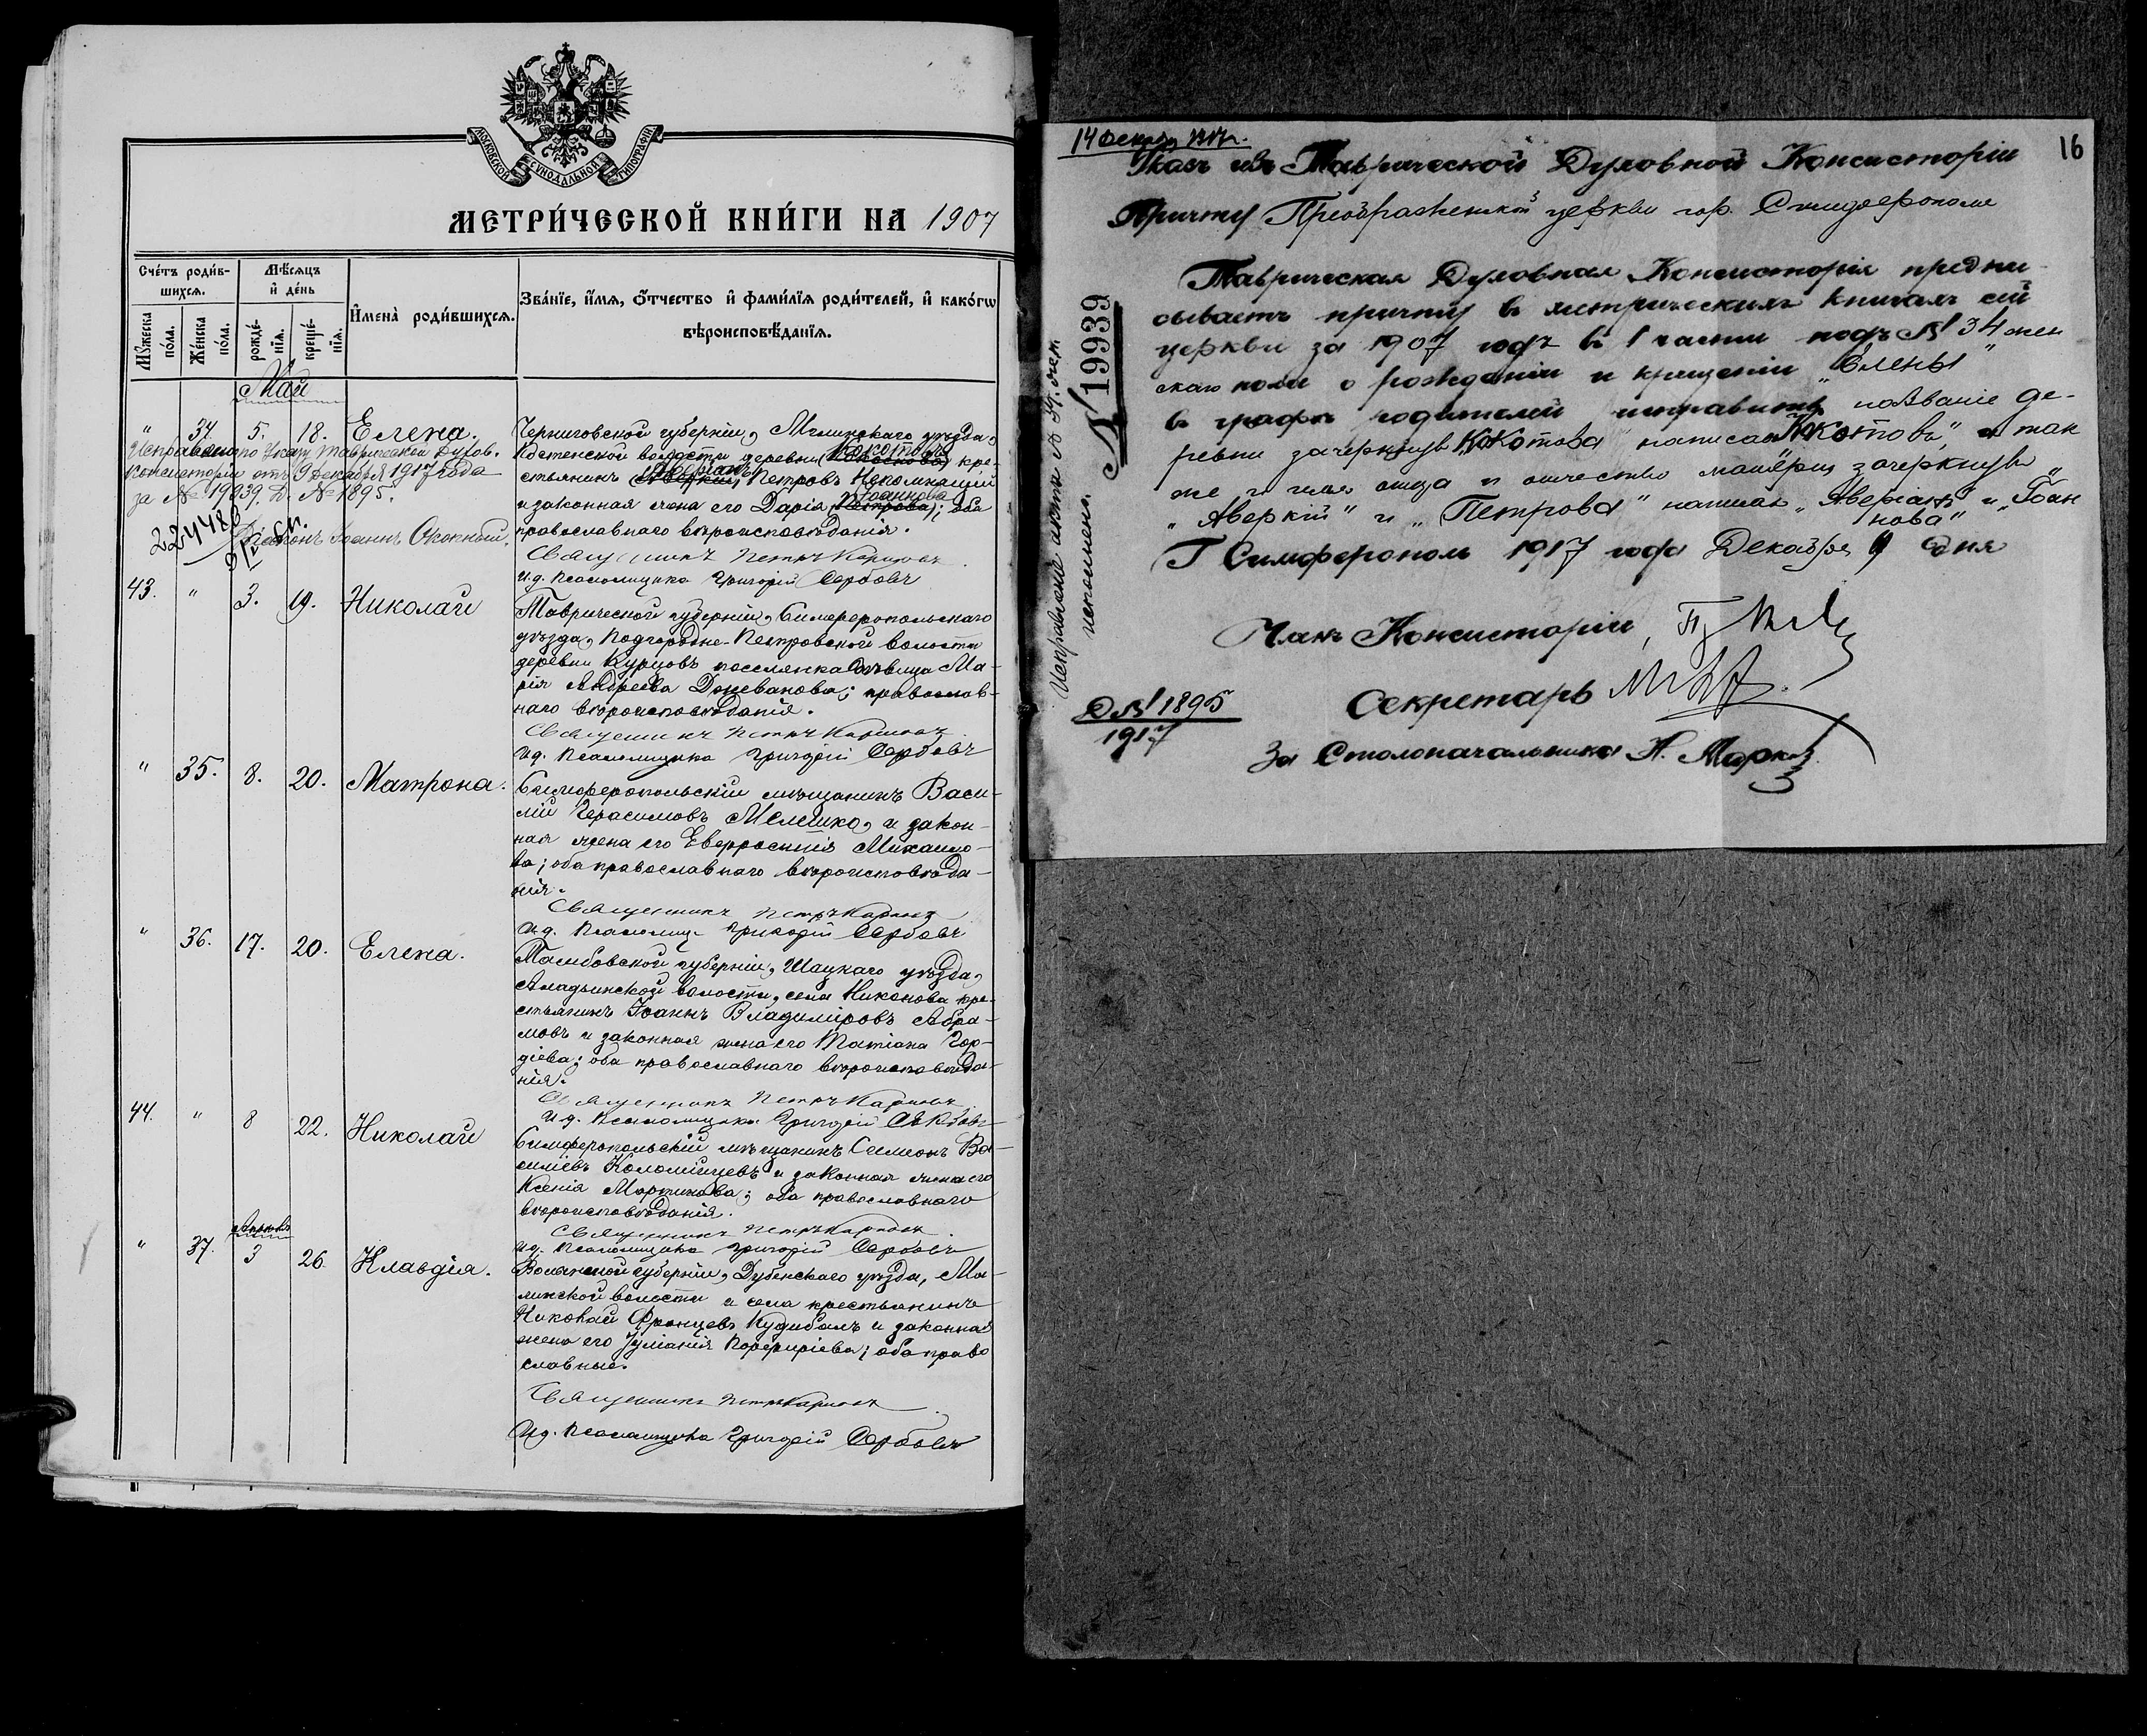 МОСКОВСКОЙ СѴНОДАЛЬНОЙ ТИПОГРАФІИ
МЕТРИ́ЧЕСКОЙ КНИ́ГИ НА 1907
Сче́тъ роди́вшихся.
Мѣ́сяцъ и҆ де́нь
И҆мена̀ роди́вшихся.
Зва́нїе, и҆́мя, ѻ҆́тчество и҆ фами́лїя роди́телей, и҆ како́гѡ
вѣроисповѣ́данїя.
Мꙋ́жеска по́ла.
Же́нска по́ла.
рожде́нїя.
креще́нїя.
Май
" 34 5. 18. Елена.
Черниговской губерніи, Мглинскаго уѣзда,
Костенской волости деревни Кокотовъ кре-
стьянинъ Аверкій Аверіанъ Петровъ Непомнящій
и законная жена его Дарія Петрова Іоаннова; оба
православнаго вѣроисповѣданія.
Исправлено по Указу Таврической Духов.
Консисторіи отъ 9 Декабря 1917 года
за № 19939. Д. № 1895.
Діаконъ Іоаннъ
224480
Священникъ Петръ
И.д. Псаломщика Григорій Сербовъ
43. " 3. 19. Николай
Таврической губерніи, Симферопольскаго
уѣзда, Подгородне-Петровской волости
деревни Курцовъ поселянка дѣвица Ма-
рія Андреева; православ-
наго вѣроисповѣданія.
Священникъ Петръ
И.д. Псаломщика Григорій Сербовъ
" 35. 8. 20. Матрона.
Симферопольскій мѣщанинъ Васи-
лій Герасимовъ Мелешко, и закон-
ная жена его Евфросинія Михаило-
ва; оба православнаго вѣроисповѣда-
нія.
Священникъ Петръ
И.д. Псаломщ. Григорій Сербовъ
" 36. 17. 20. Елена.
Тамбовской губерніи, Шацкаго уѣзда,
Аладьинской волости, села Никонова кре-
стьянинъ Іоаннъ Владиміровъ Абра-
мовъ и законная жена его Татіана Гор-
діева; оба православнаго вѣроисповѣда-
нія.
Священникъ Петръ
И.д. Псаломщика Григорій Сербовъ
44. " 8 22. Николай
Симферопольскій мѣщанинъ Симеонъ Ва-
силіевъ Коломійцевъ и законная жена его
Ксенія Мартинова; оба православнаго
вѣроисповѣданія.
Священникъ Петръ
И.д. Псаломщика Григорій Сербовъ
" 37. 3 26. Клавдія.
Волынской губерніи, Дубенскаго уѣзда, Ма-
линской волости и села крестьянинъ
Николай Францевъ и законная
жена его Іуліанія Порфиріева; оба право
славные.
Священникъ Петръ
И.д. Псаломщика Григорій Сербовъ
14 Декабря 1917 г.
16
Указъ изъ Таврической Духовной Консисторіи
Причту Преображенской церкви гор. Симферополя
Таврическая Духовная Консисторія предпи-
сываетъ причту въ метрическихъ книгахъ сей
церкви за 1907 годъ въ I части подъ № 34 жен
скаго пола о рожденіи и крещеніи „Елены"
въ графѣ родителей исправить названіе де-
ревни зачеркнувъ „Кокотова" написавъ „Кокотовъ," а так
же и имя отца и отчество матери зачеркнувъ
„Аверкій" и „Петрова" написавъ „Аверіанъ" и „Іоан
нова"
Г Симферополь 1917 года Декабря 9 дня
Членъ Консисторіи,
Секретарь
За Столоначальника Н.
№ 19939
Исправленіе акта № 34 жен. исполнено.
Д № 1895
1917